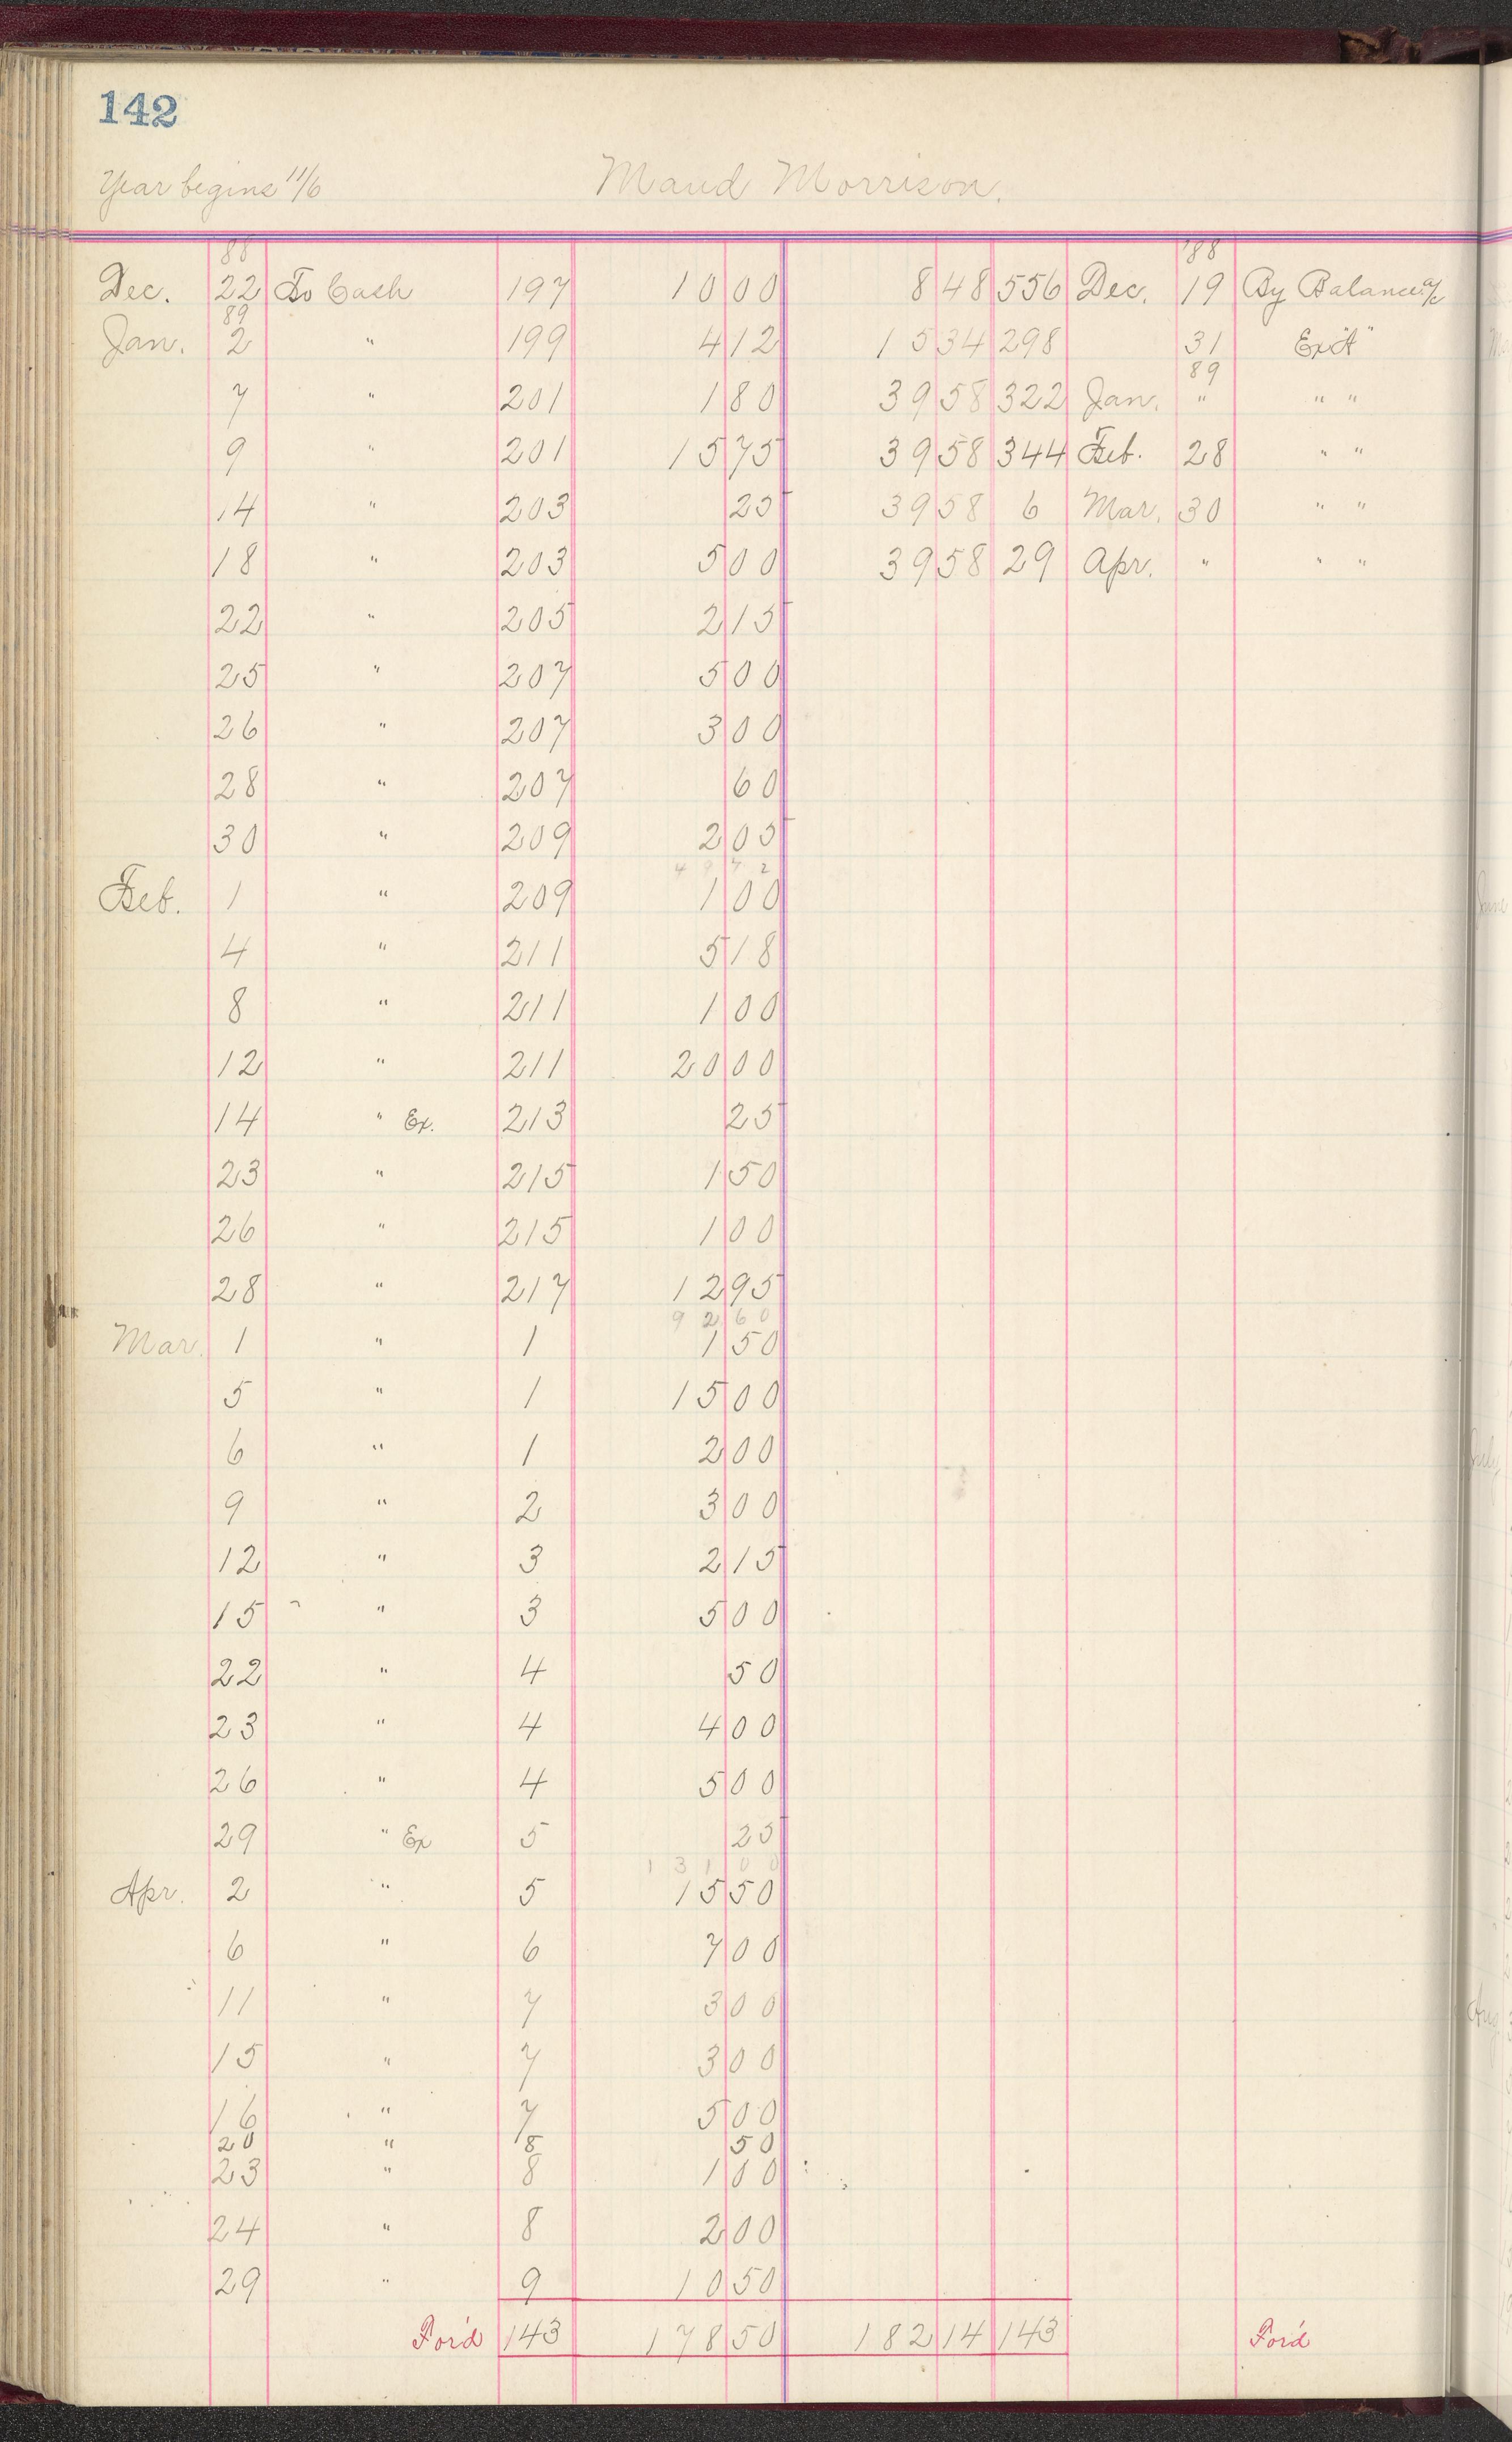 142
Year begins 11/6 Maud Morrison.
88 '88
Dec. 22 To Cash 197 10 00 8 48 556 Dec. 19 By Balance a/c
89
Jan. 2 " 199 4 12 15 34 298 31 Ex "A"
89
7 " 201 1 80 39 58 322 Jan. " " "
9 " 201 15 75 39 58 344 Feb. 28 " "
14 " 203 25 39 58 6 Mar. 30 " "
18 " 203 5 00 39 58 29 Apr. " " "
22 " 205 2 15
25 " 207 5 00
26 " 207 3 00
28 " 207 60
30 " 209 2 05
49 72
Feb. 1 " 209 1 00
4 " 211 5 18
8 " 211 1 00
12 " 211 20 00
14 " Ex. 213 25
23 " 215 1 50
26 " 215 1 00
28 " 217 12 95
92 60
Mar. 1 " 1 1 50
5 " 1 15 00
6 " 1 2 00
9 " 2 3 00
12 " 3 2 15
15 " 3 5 00
22 " 4 50
23 " 4 4 00
26 " 4 5 00
29 " Ex 5 25
131 00
Apr. 2 " 5 15 50
6 " 6 7 00
11 " 7 3 00
15 " 7 3 00
16 " 7 5 00
20 " 8 50
23 " 8 1 00
24 " 8 2 00
29 " 9 10 50
For'd 143 178 50 182 14 143 For'd